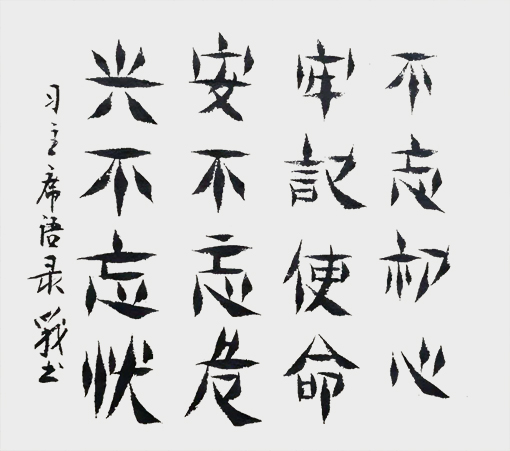 不志初心
牢記使命
安不忘危
兴不忘忧
习主席语录 书